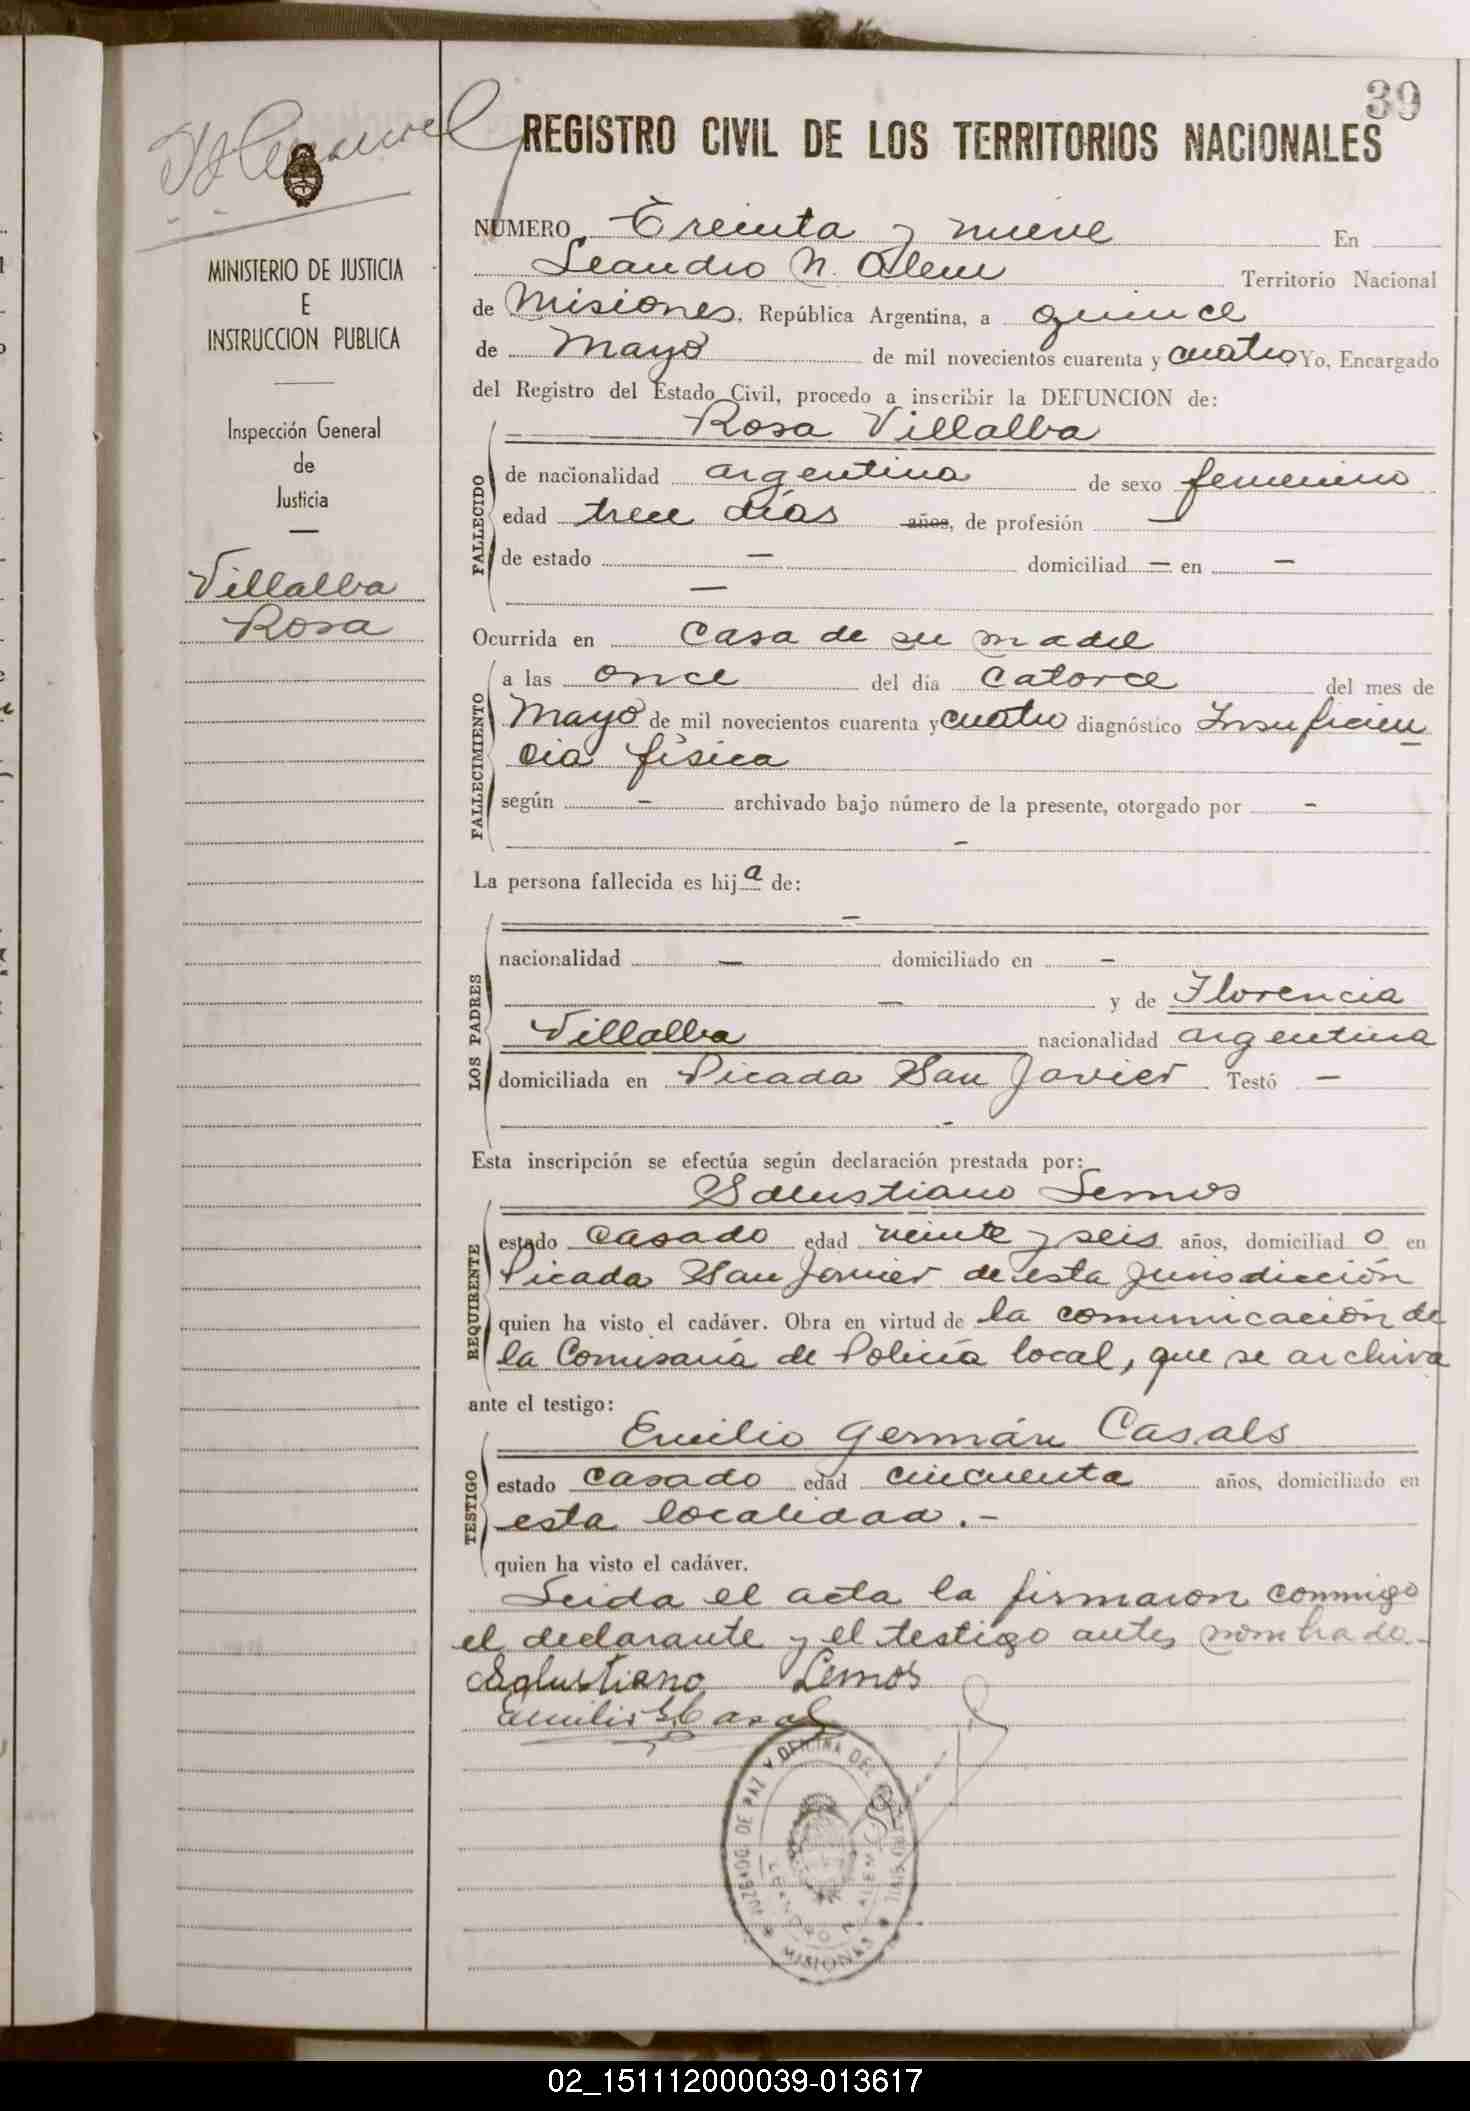 39
REGISTRO CIVIL DE LOS TERRITORIOS NACIONALES
MINISTERIO DE JUSTICIA
E
INSTRUCCION PUBLICA
Inspección General
de
Justicia
Villalba
Rosa
NÚMERO Treinta y nueve En
Leandro N. Alem Territorio Nacional
de Misiones, República Argentina, a quince
de Mayo de mil novecientos cuarenta y cuatro Yo, Encargado
del Registro del Estado Civil, procedo a inscribir la DEFUNCION de:
Rosa Villalba
FALLECIDO
de nacionalidad argentina de sexo femenino
edad trece días años, de profesión —
de estado — domiciliad — en —
—
Ocurrida en casa de su madre
FALLECIMIENTO
a las once del día catorce del mes de
Mayo de mil novecientos cuarenta y cuatro diagnóstico Insuficien
cia física
según — archivado bajo número de la presente, otorgado por —
—
La persona fallecida es hija de:
—
LOS PADRES
nacionalidad — domiciliado en —
— y de Florencia
Villalba nacionalidad argentina
domiciliada en Picada San Javier Testó —
—
Esta inscripción se efectúa según declaración prestada por:
Salustiano Lemos
REQUIRENTE
estado casado edad veinte y seis años, domiciliad o en
Picada San Javier de esta jurisdicción
quien ha visto el cadáver. Obra en virtud de la comunicación de
la Comisaría de Policía local, que se archiva
ante el testigo:
Emilio Germán Casals
TESTIGO
estado casado edad cincuenta años, domiciliado en
esta localidad.-
quien ha visto el cadáver.
Leida el acta la firmaron conmigo
el declarante y el testigo antes nombrado.-
Salustiano Lemos
Emilio G Casals
JUZGADO DE PAZ Y OFICINA DEL CIVIL
LEANDRO N. ALEM
MISIONES
02_151112000039-013617